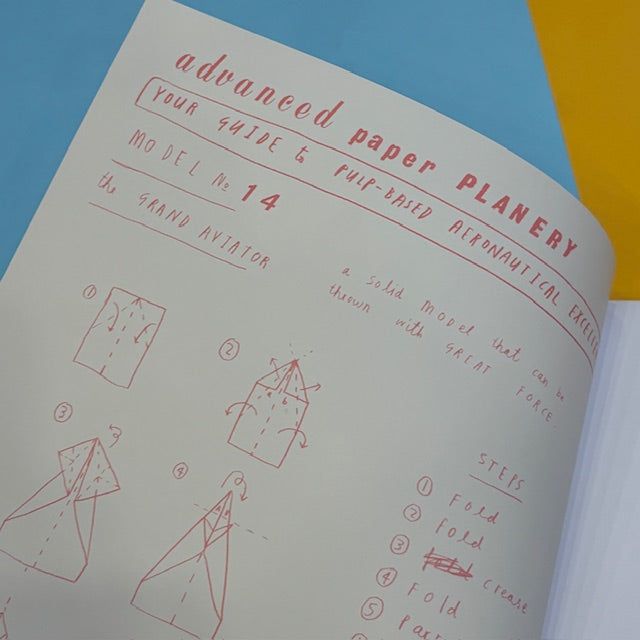 advanced paper PLANERY
YOUR GUIDE to PULP-BASED AERONAUTICAL
MODEL No 14
the GRAND AVIATOR
a solid MODEL that can be
thrown with GREAT FORCE.
1
2
3
4
STEPS
1 Fold
2 Fold
3 crease
4 Fold
5